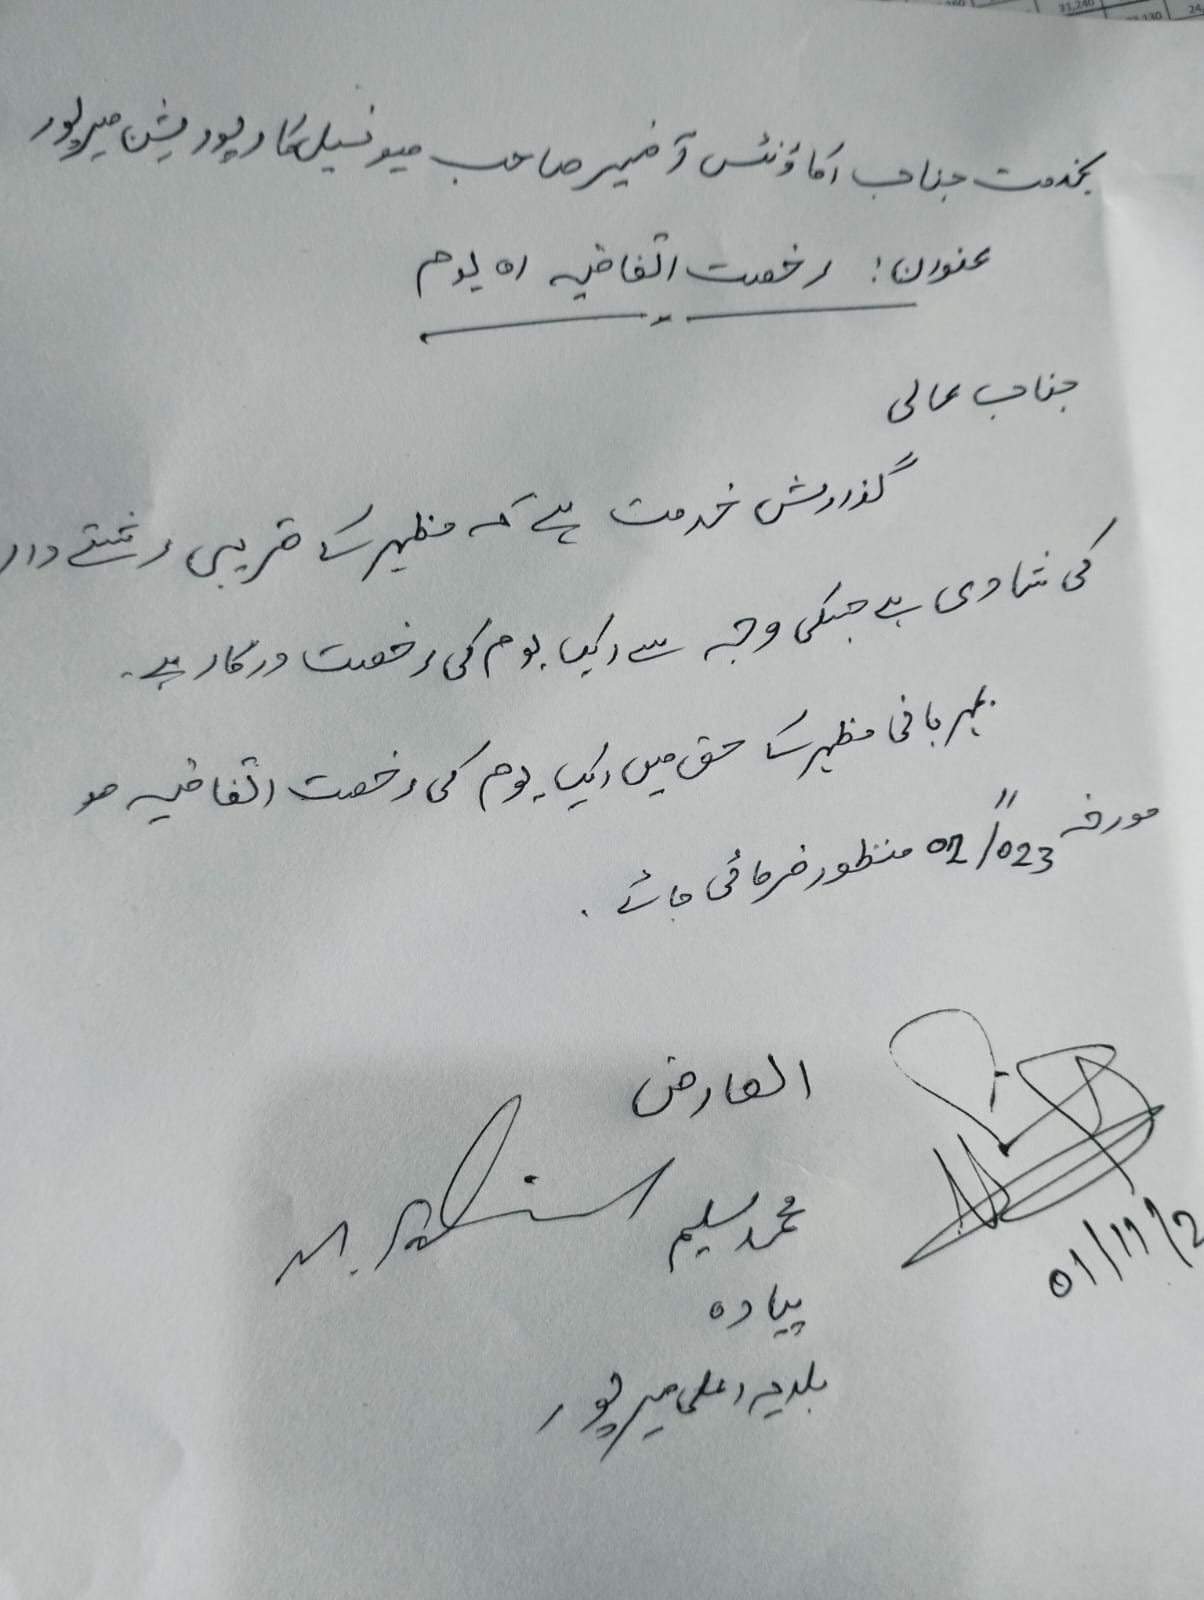 بخدمت جناب اکاؤنٹس آفیسر صاحب میونسپل کارپوریشن میرپور
عنوان: رخصت اتفاقیہ 01 یوم
جناب عالی
گذارش خدمت ہے کہ مظہر کے قریبی رشتے دار
کی شادی ہے جسکی وجہ سے ایک یوم کی رخصت درکار ہے۔
بمہربانی مظہر کے حق میں ایک یوم کی رخصت اتفاقیہ
مورخہ 02/11/023 منظور فرمائی جائے۔
العارض
محمد سلیم
پیادہ
بلدیہ اعلی میرپور
01/11/2
31,240